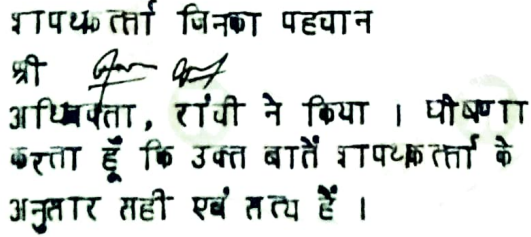 शपथकर्त्ता जिनका पहचान
श्री
अधिवक्ता, रांची ने किया । घोषणा
करता हूँ कि उक्त बातें शपथकर्त्ता के
अनुसार सही एवं सत्य हैं ।